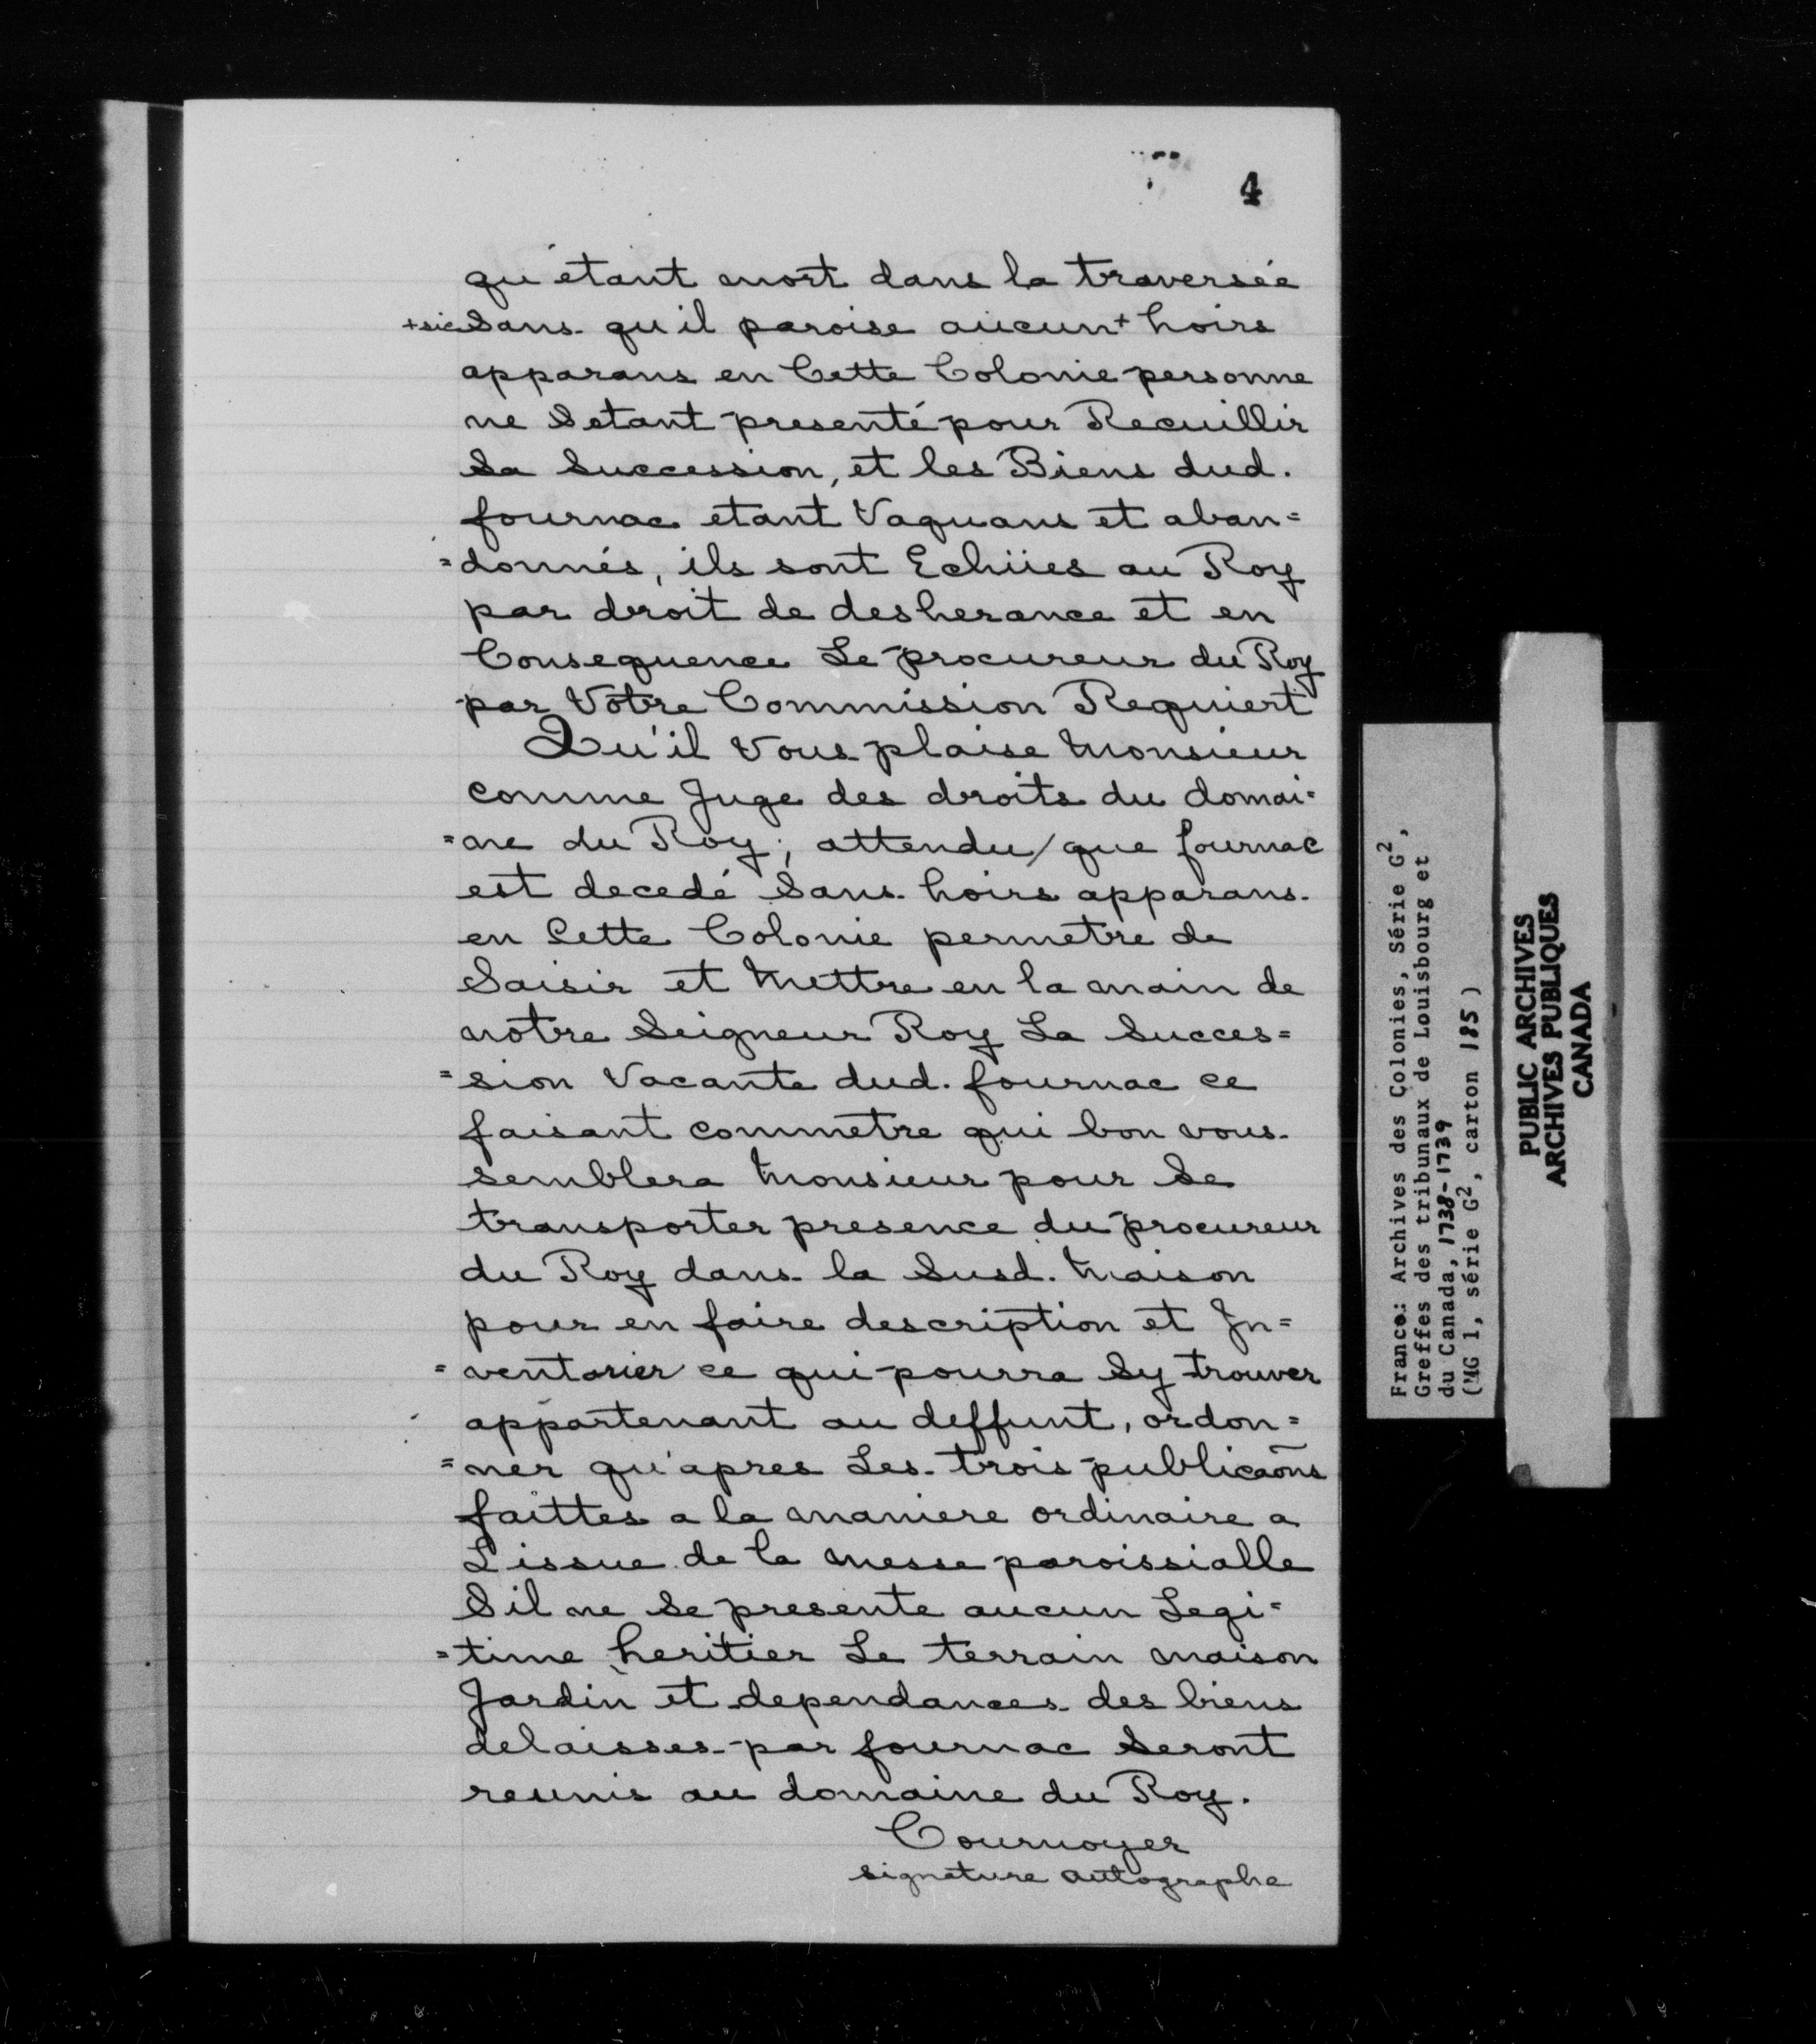 4
qu'etant mort dans la traversée
+sic Sans qu'il paroise aucun+ hoirs
apparans en Cette Colonie personne
ne Setant presenté pour Recuillir
Sa Succession, et les Biens dud.
fournac etant Vaquans et aban=
=donnés, ils sont Echües au Roy
par droit de desherance et en
Consequence Le procureur du Roy
par Votre Commission Requiert
Qu'il Vous plaise Monsieur
comme Juge des droits du domai=
=ne du Roy; attendu que fournac
est decedé Sans hoirs apparans
en Cette Colonie permetre de
Saisir et Mettre en la main de
notre Seigneur Roy La Succes=
=sion Vacante dud. fournac ce
faisant commetre qui bon vous
semblera Monsieur pour Se
transporter presence du procureur
du Roy dans la Susd. Maison
pour en faire description et In=
=ventorier ce qui pourra Sy trouver
appartenant au deffunt, ordon=
=ner qu'apres Les trois publicaõns
faittes a la maniere ordinaire a
L'issue de la messe paroissialle
Sil ne Se presente aucun Legi=
=time heritier Le terrain maison
Jardin et dependances des biens
delaisses par fournac Seront
reunis au domaine du Roy.
Cournoyer
signature autographe
France: Archives des Colonies, Série G²,
Greffes des tribunaux de Louisbourg et
du Canada, 1738-1739
(MG 1, série G², carton 185)
PUBLIC ARCHIVES
ARCHIVES PUBLIQUES
CANADA